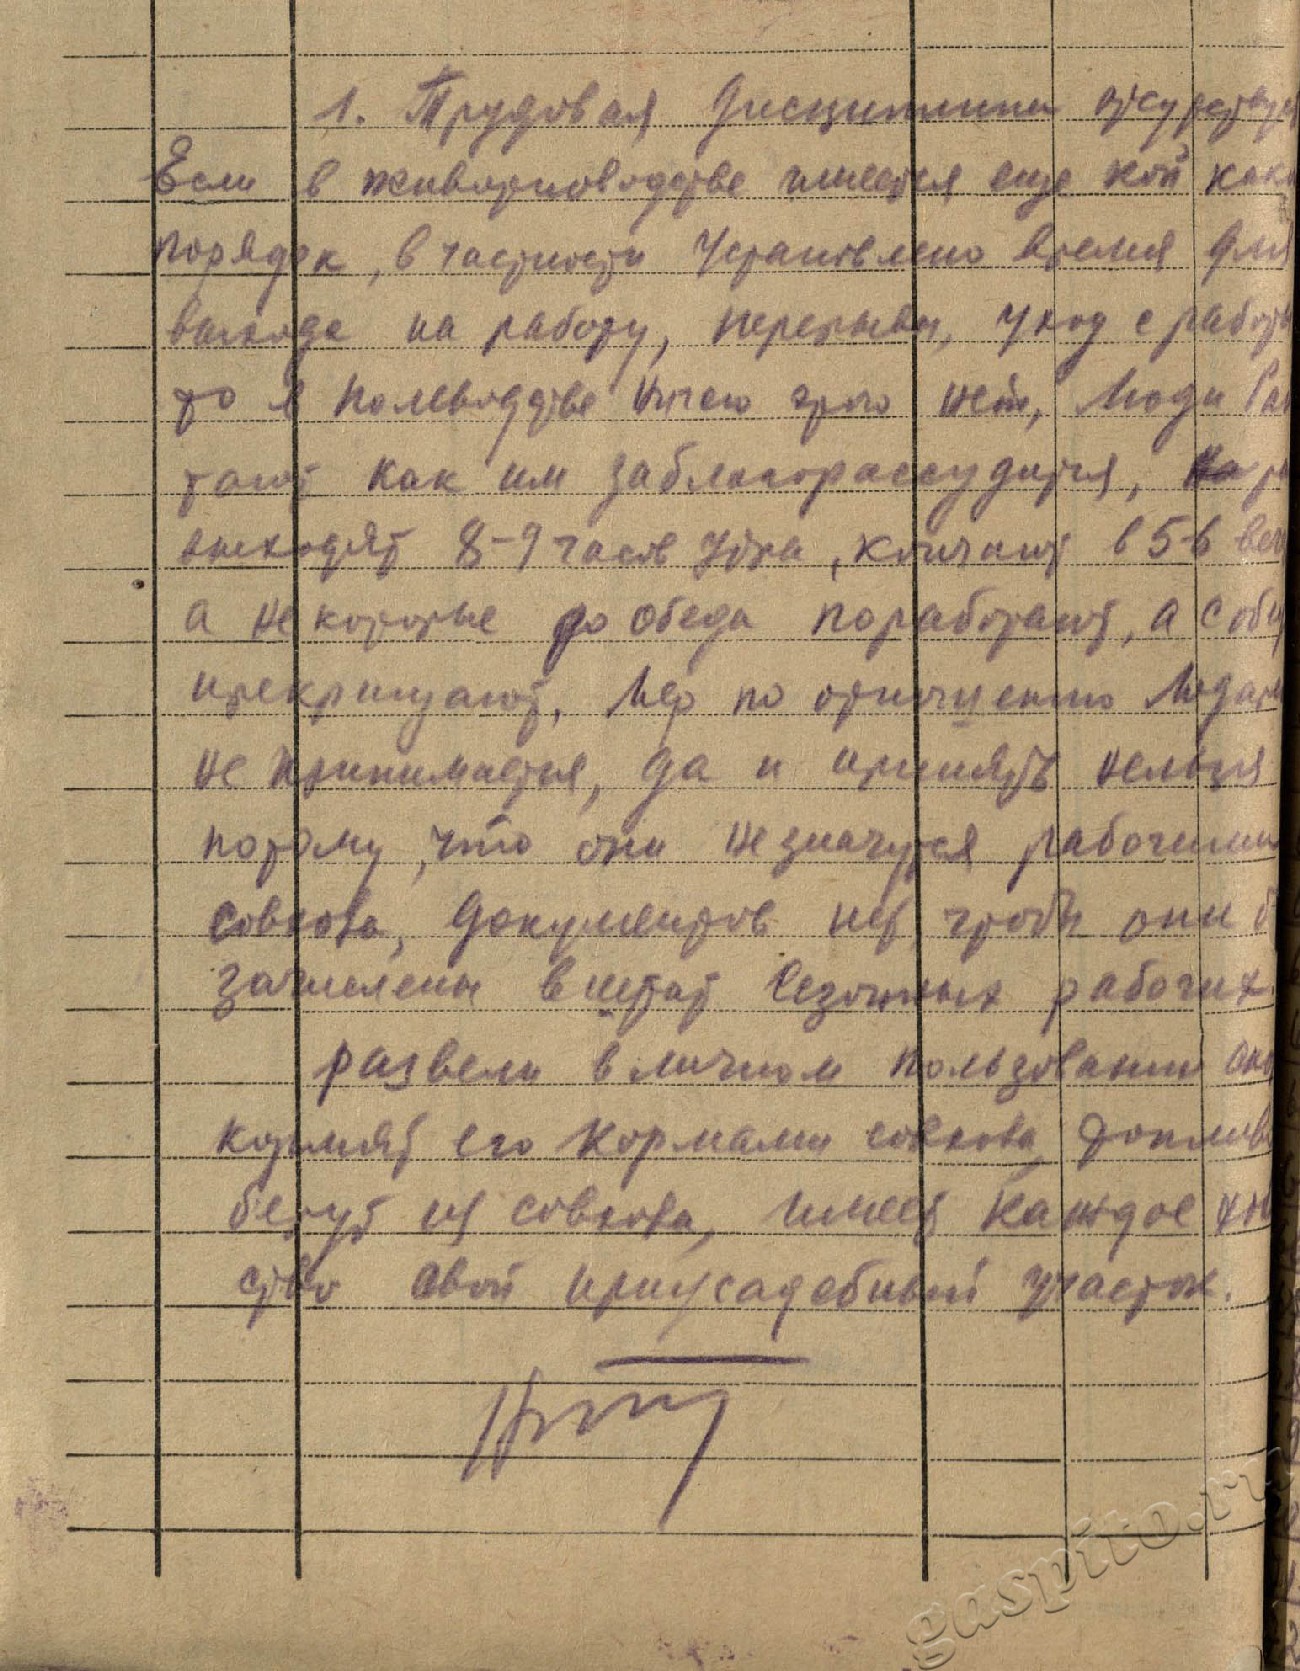 1. Трудовая дисциплина отсутствует
Если в животноводстве имеется еще кой како
порядок, в частности установлено время для
выхода на работу, перерывы, уход с работы
то в полеводстве ничего этого нет, люди раб
тают как им заблагорассудится, на ра
выходят 8-9 часов утра, кончают в 5-6 веч
а некоторые до обеда поработают, а с обед
прекращают, мер по отношению людям
не принимается, да и принять нельзя
потому, что они не значутся рабочими
совхоза, документов нет чтобы они б
зачислены в штат сезонных рабочих.
развели в личном пользовании ско
кормят его кормами совхоза, топливо
берут из совхоза, имеет каждое хозя
ство свой приусадебный участок.
gaspito.ru